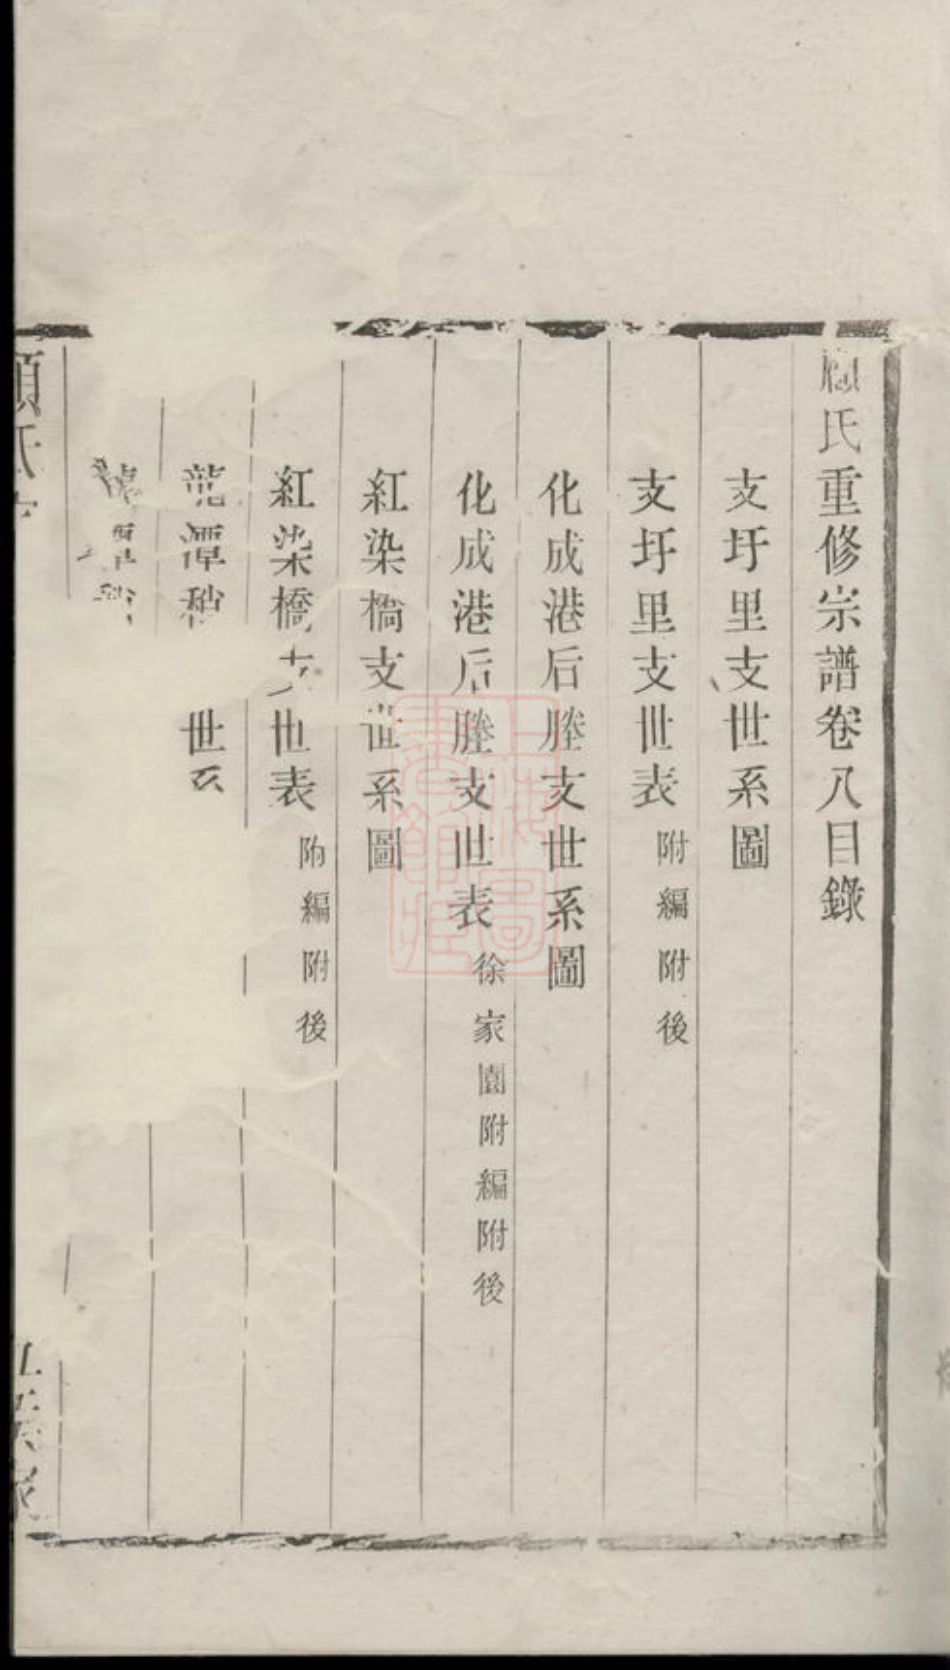 顧氏重修宗譜卷八目錄
支圩里支世系圖
支圩里支世表 附編附後
化成港后塍支世系圖
化成港后塍支世表 徐家園附編附後
紅染橋支世系圖
紅染橋支世表 附編附後
龍潭 世系
顧氏